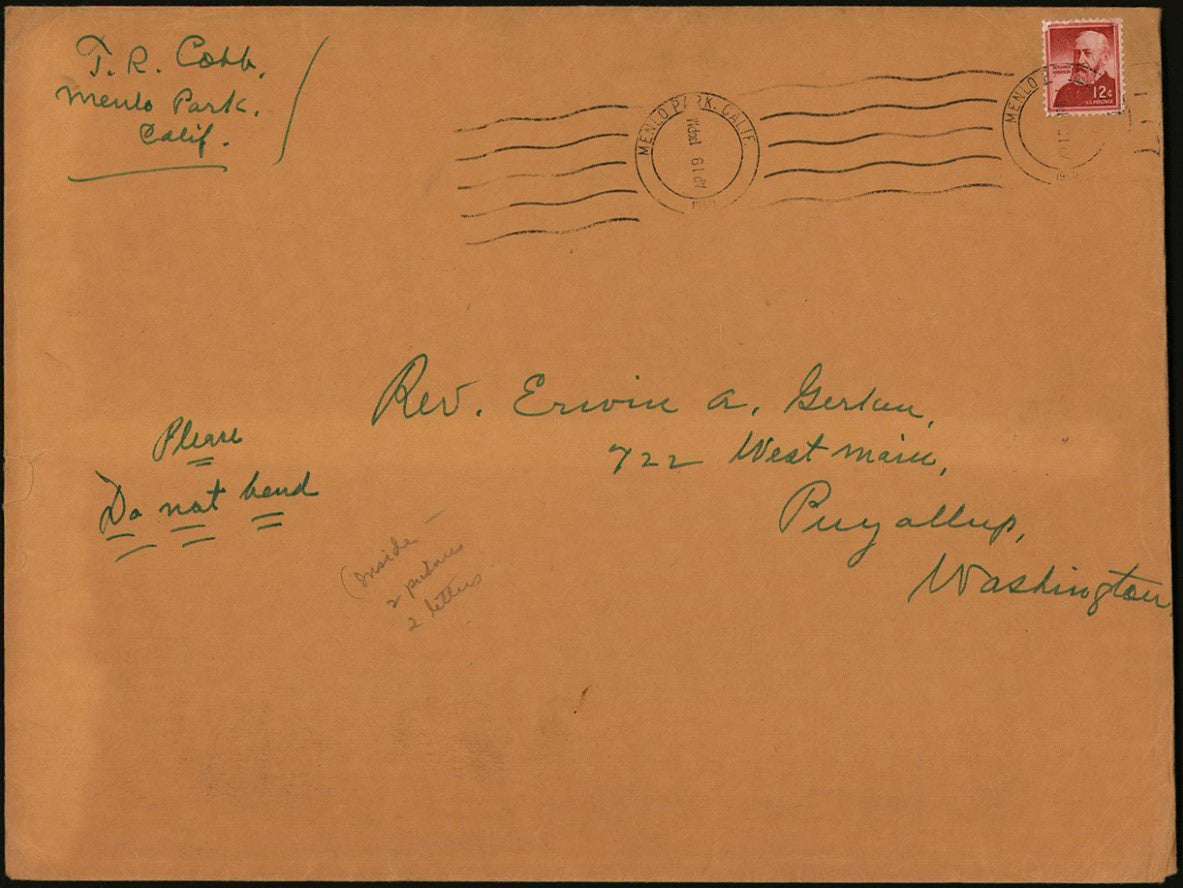 T. R. Cobb.
Menlo Park.
Calif.
MENLO PARK, CALIF
1 30 PM
AP 19
MENLO P
BENJAMIN
HARRISON
12¢
U.S. POSTAGE
Rev. Erwin A. Gerken,
722 West Main,
Puyallup,
Washington.
Please
Do not bend
(Inside
2 pictures
2 letters